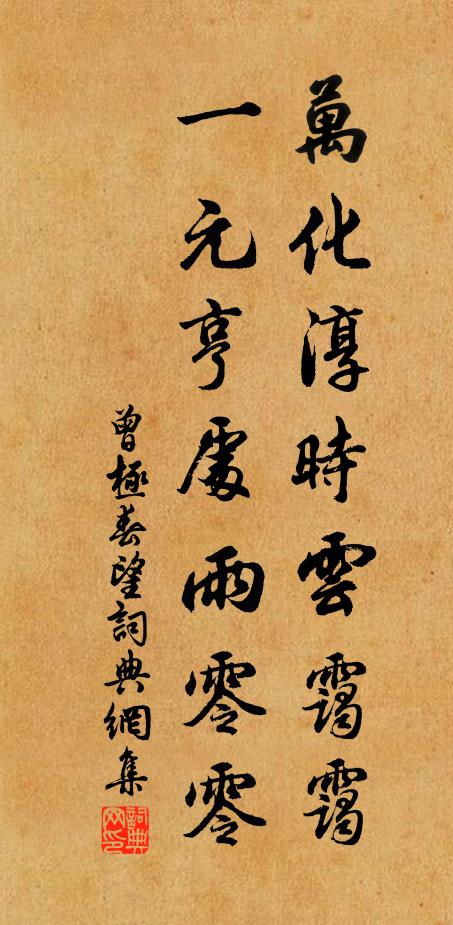 萬化淳時雲靄靄
一元亨處雨零零
曾極春望詞典網集
詞典網印